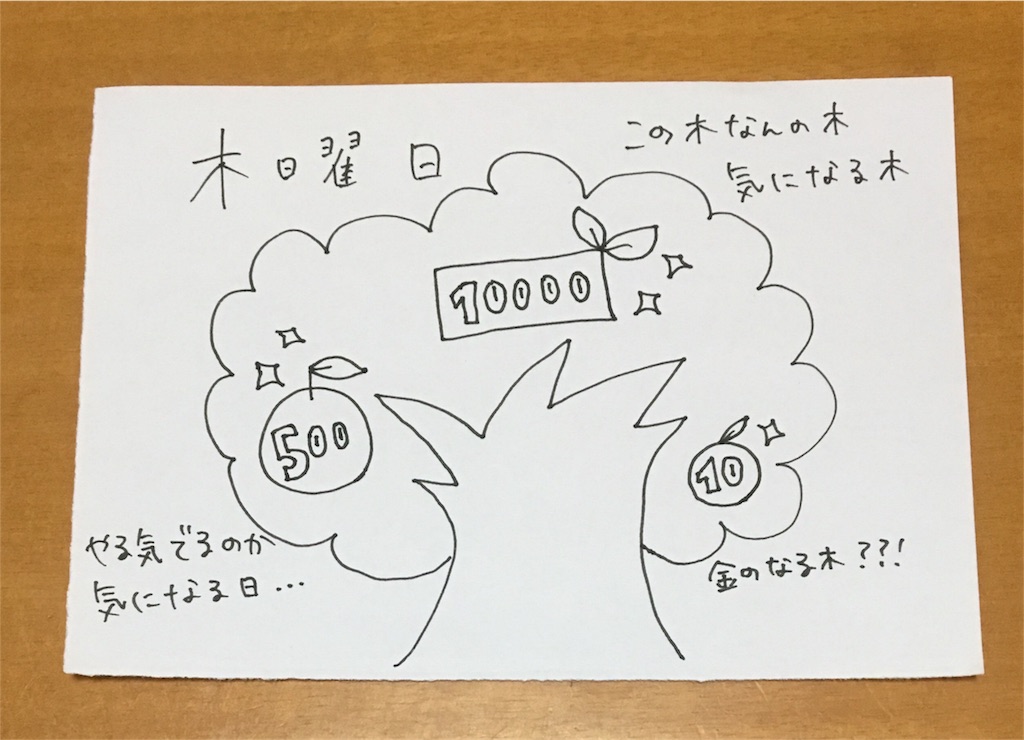 木曜日
この木なんの木
気になる木
10000
500
10
やる気でるのか
気になる日...
金のなる木???!